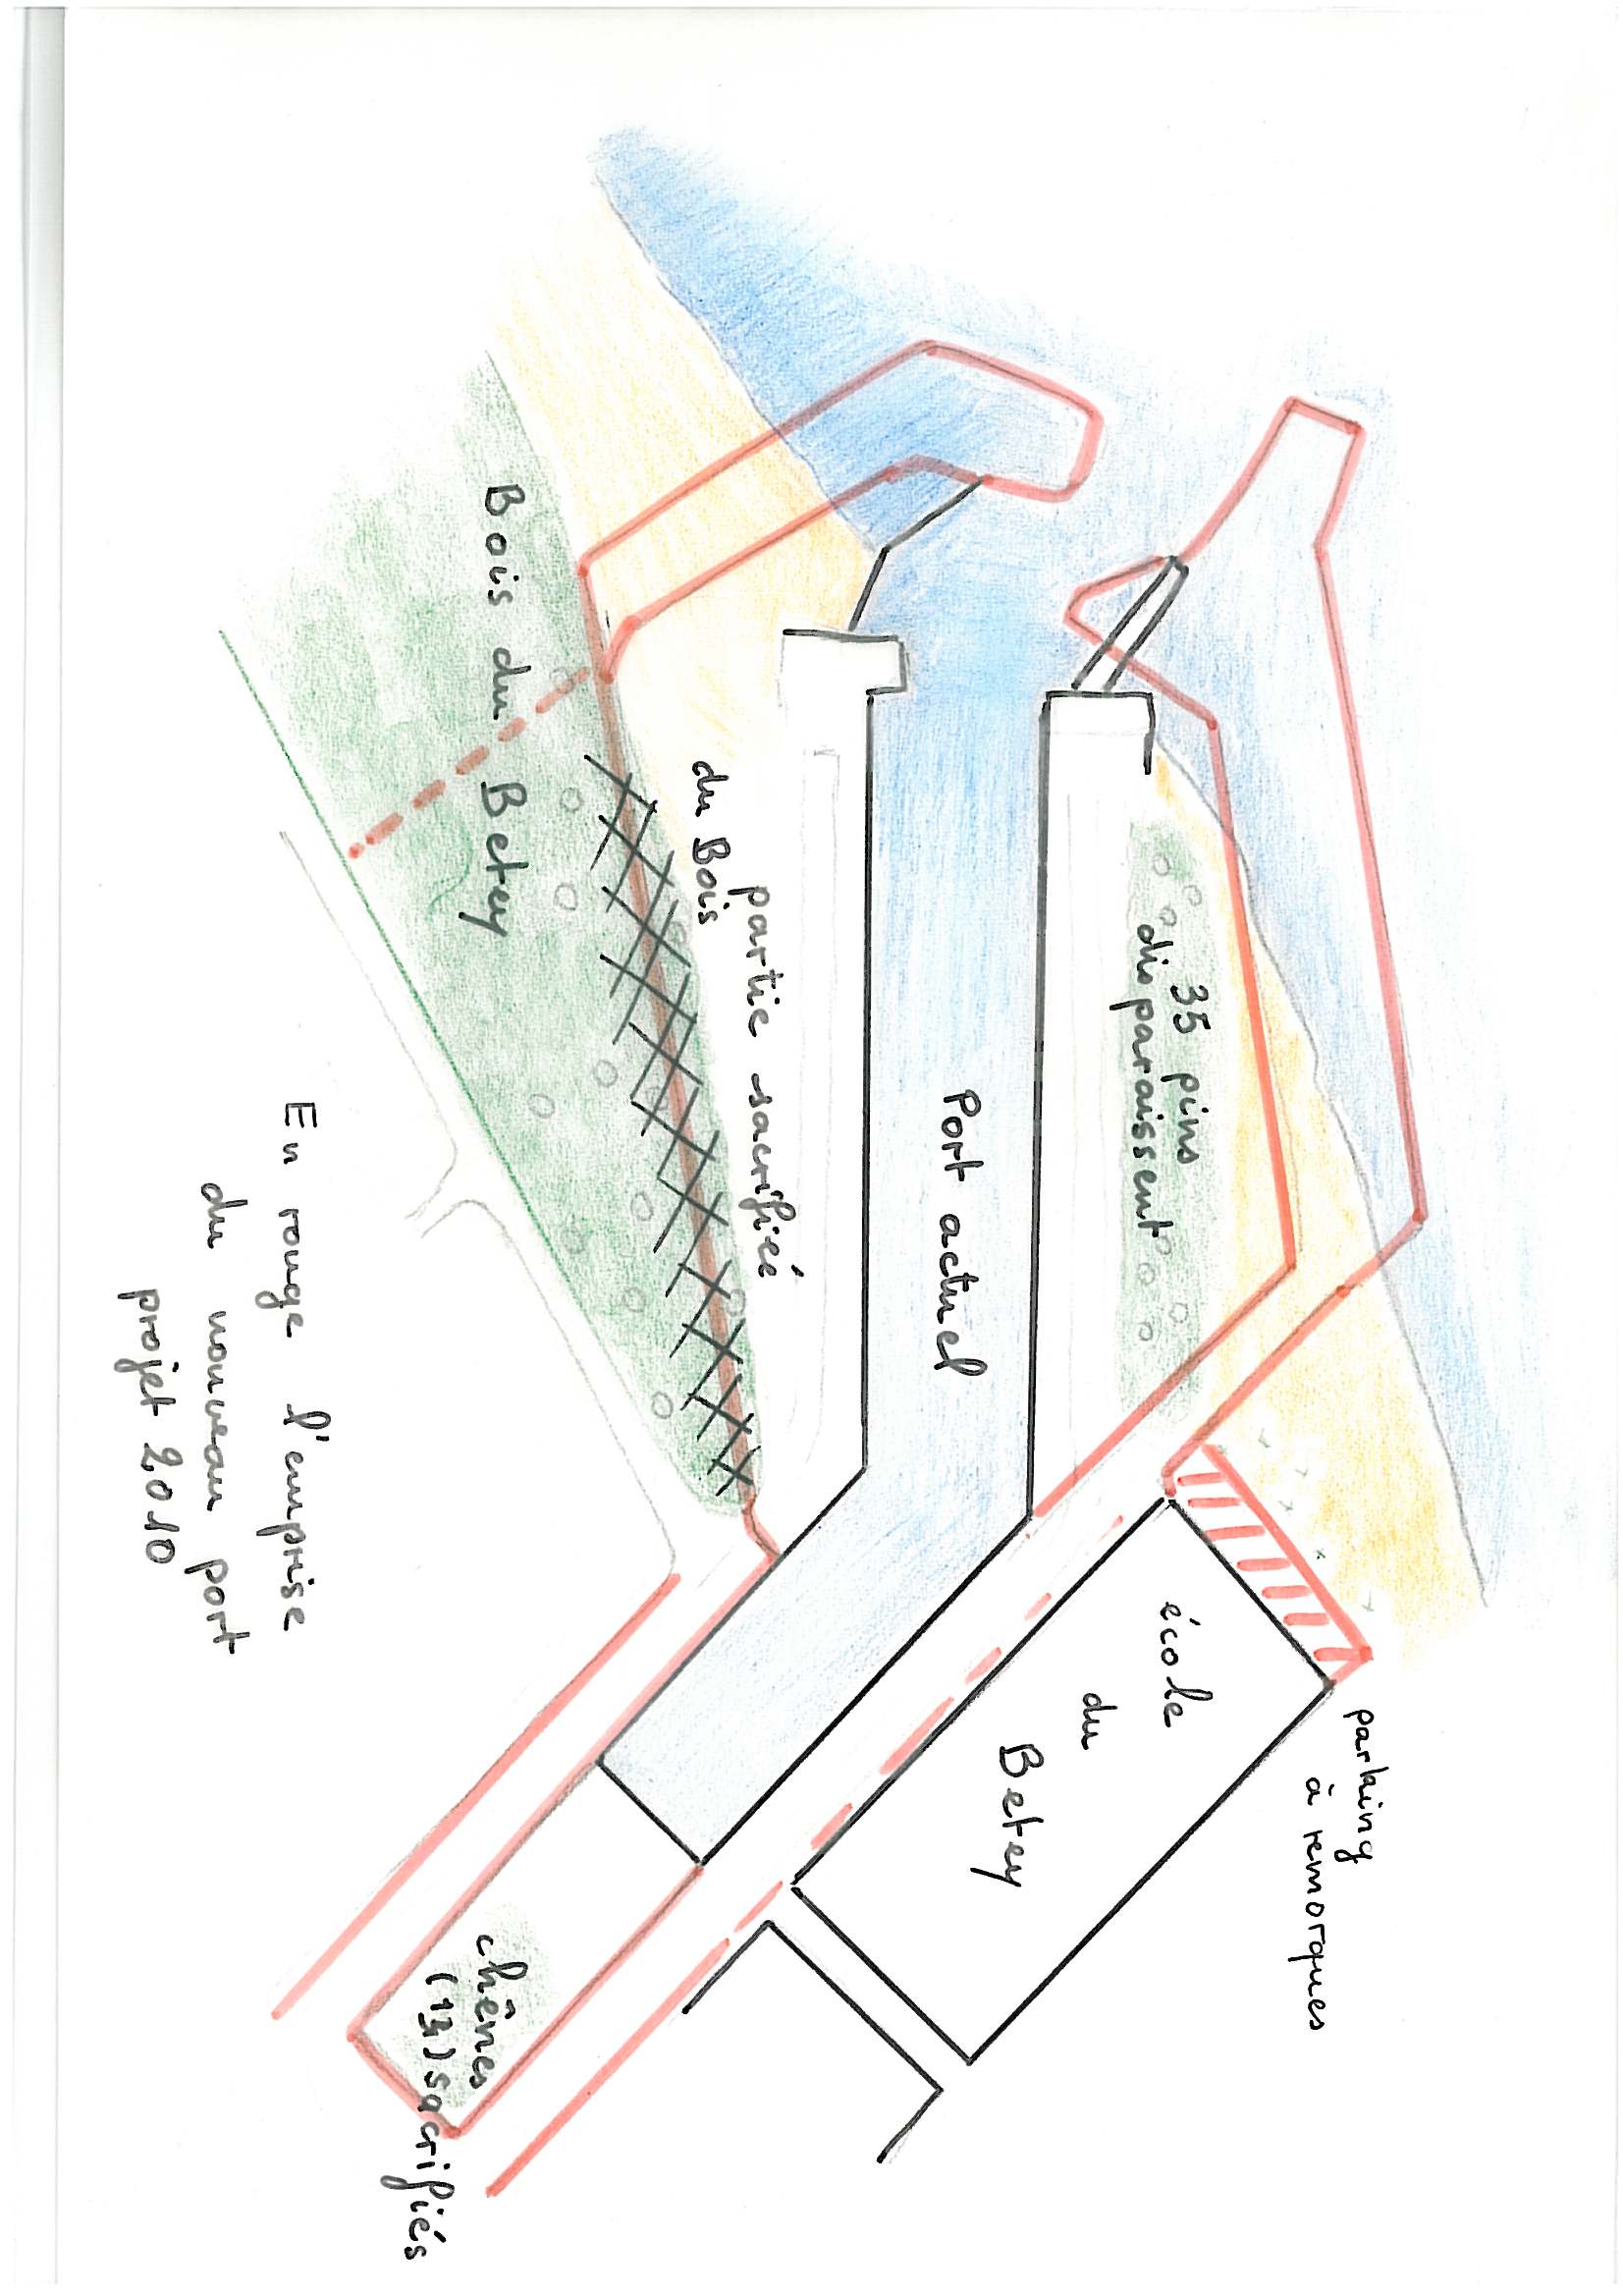 parking
à remorques
école
du
Betey
35 pins
disparaissent
Port actuel
partie sacrifiée
du Bois
Bois du Betey
chênes
(13) sacrifiés
En rouge l'emprise
du nouveau port
projet 2010